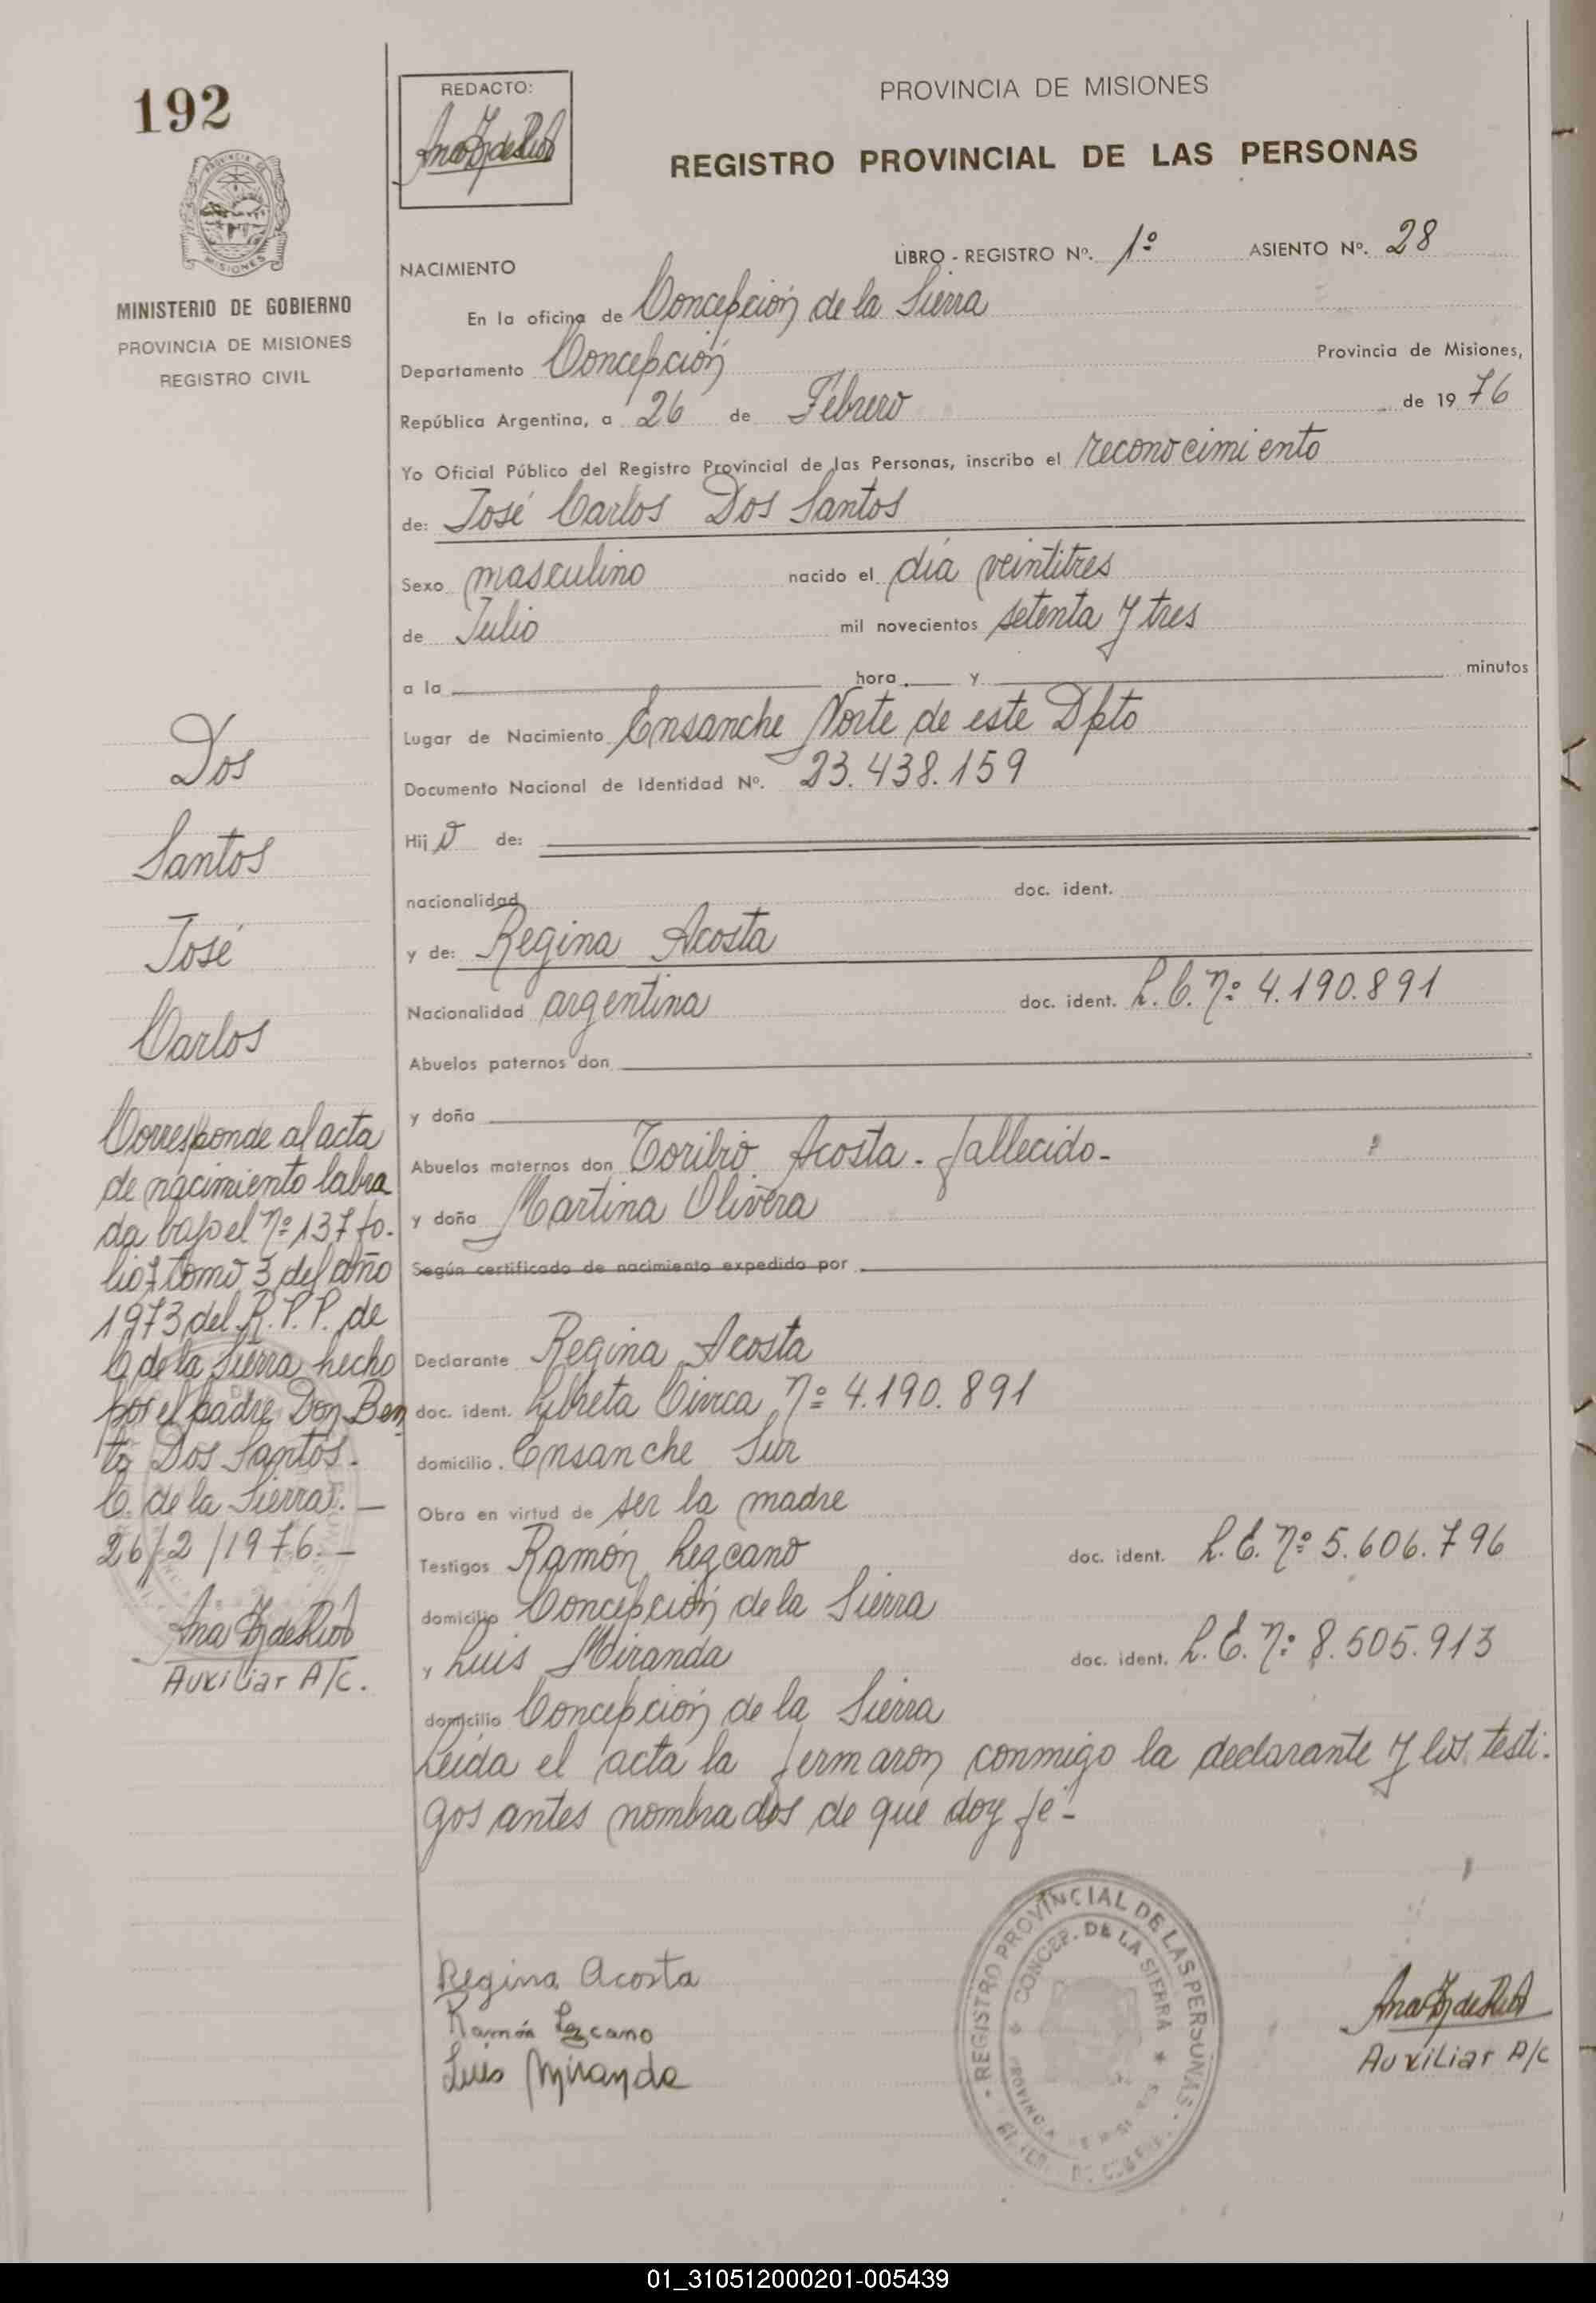 192
REDACTO:
PROVINCIA DE MISIONES
REGISTRO PROVINCIAL DE LAS PERSONAS
MINISTERIO DE GOBIERNO
PROVINCIA DE MISIONES
REGISTRO CIVIL
LIBRO - REGISTRO Nº. 1º ASIENTO Nº. 28
NACIMIENTO
En la oficina de Concepción de la Sierra
Departamento Concepción Provincia de Misiones,
República Argentina, a 26 de Febrero de 1976
Yo Oficial Público del Registro Provincial de las Personas, inscribo el reconocimiento
de: José Carlos Dos Santos
Sexo masculino nacido el día veintitres
de Julio mil novecientos setenta y tres
a la hora y minutos
Lugar de Nacimiento Ensanche Norte de este Dpto
Documento Nacional de Identidad Nº. 23.438.159
Hijo de:
nacionalidad doc. ident.
y de: Regina Acosta
Nacionalidad argentina doc. ident. L.C. Nº 4.190.891
Abuelos paternos don
y doña
Abuelos maternos don Toribio Acosta - fallecido -
y doña Martina Olivera
Según certificado de nacimiento expedido por
Declarante Regina Acosta
doc. ident. Libreta Civica Nº 4.190.891
domicilio Ensanche Sur
Obra en virtud de ser la madre
Testigos Ramón Lezcano doc. ident. L.E. Nº 5.606.796
domicilio Concepción de la Sierra
y Luis Miranda doc. ident. L.E. Nº 8.505.913
domicilio Concepción de la Sierra
Leida el acta la fermaron conmigo la declarante y los testi-
gos antes nombrados de que doy fe -
Dos
Santos
José
Carlos
Corresponde al acta
de nacimiento labra
da bajo el Nº 137 fo-
lio 7 tomo 3 del año
1973 del R.P.P. de
C. de la Sierra hecho
por el padre Don Ben
to Dos Santos.
C. de la Sierra. -
26/2/1976. -
Auxiliar A/C.
Regina Acosta
Ramón Lezcano
Luis Miranda
REGISTRO PROVINCIAL DE LAS PERSONAS
CONCEP. DE LA SIERRA
Auxiliar A/C
01_310512000201-005439